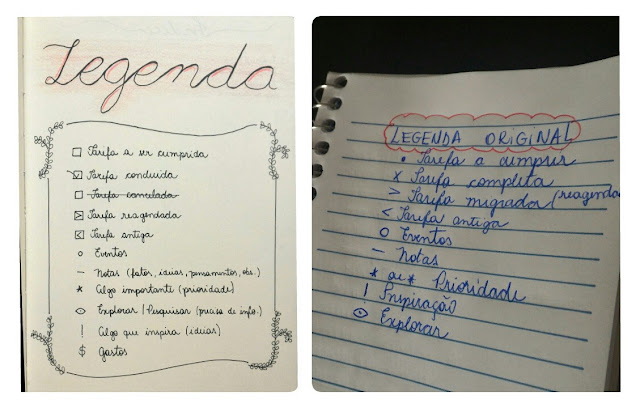 Legenda
□ Tarefa a ser cumprida
☑ Tarefa concluída
□ Tarefa cancelada
> Tarefa reagendada
< Tarefa antiga
o Eventos
– Notas (fatos, ideias, pensamentos, obs.)
* Algo importante (prioridade)
⊙ Explorar / Pesquisar (precisa de info.)
! Algo que inspira (ideias)
$ Gastos
LEGENDA ORIGINAL
• Tarefa a cumprir
x Tarefa completa
> Tarefa migrada (reagenda
< Tarefa antiga
o Eventos
– Notas
* ou * Prioridade
! Inspiração
⊙ Explorar